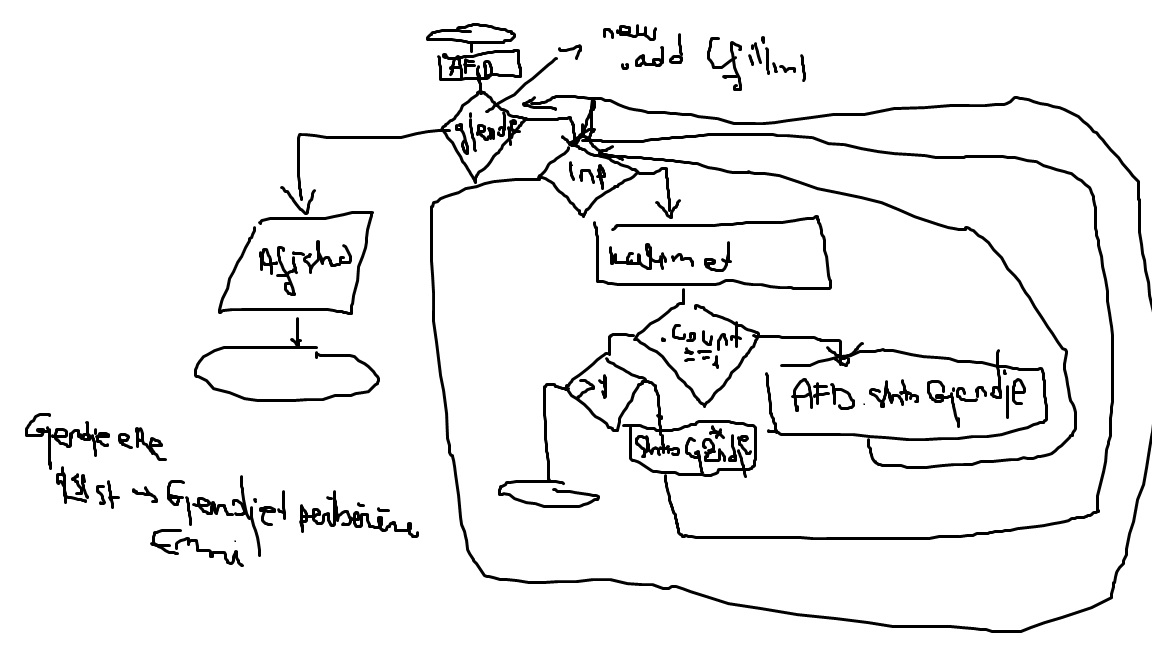 new
.add (fillim)
AFD
gjendje
Inp
Afisho
kalimet
.Count
==1
>1
AFD.shto Gjendje
shto Gjendje*
Gjendje eRe
List → Gjendjet përbërëse
Emri